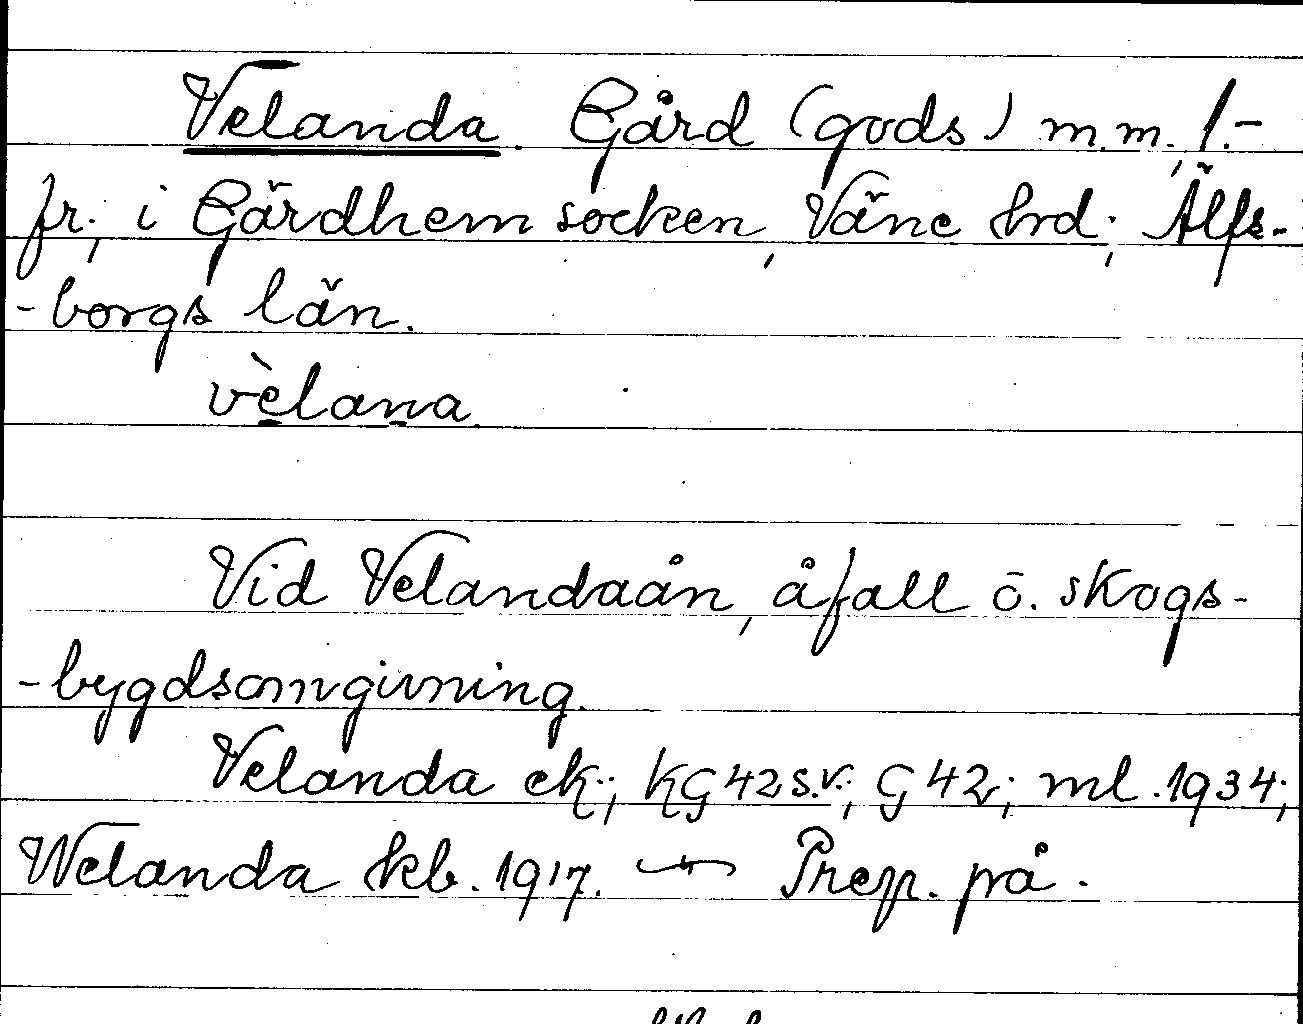 Velanda. Gård (gods) m.m., 1.-
fr., i Gärdhem socken, Väne hrd, Älfs-
-borgs län.
vèlana.
Vid Velandaån, åfall o. skogs-
-bygdsomgivning.
Velanda ek.; KG 42 s.v.; G 42; ml. 1934;
Welanda kb. 1917. — Prep. på.